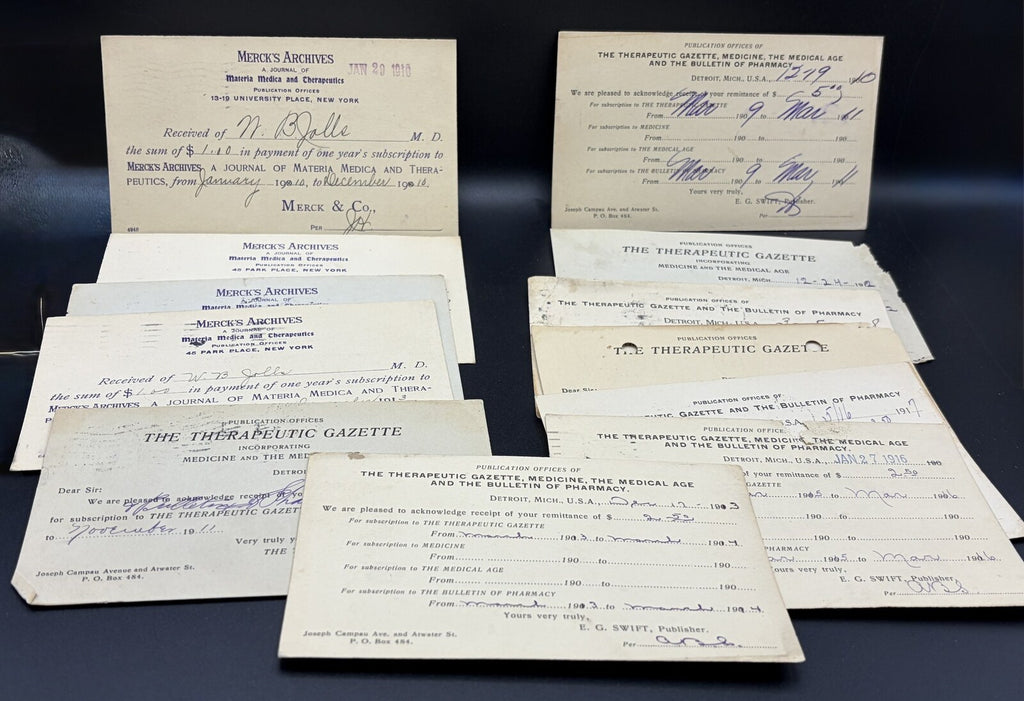 MERCK'S ARCHIVES
A JOURNAL OF
Materia Medica and Therapeutics
PUBLICATION OFFICES
13-19 UNIVERSITY PLACE, NEW YORK
JAN 29 1910
Received of W. B Jolls M. D.
the sum of $ 1.00 in payment of one year's subscription to
MERCK'S ARCHIVES, A JOURNAL OF MATERIA MEDICA AND THERA-
PEUTICS, from January 1910, to December 1910.
MERCK & CO.,
PER
MERCK'S ARCHIVES
A JOURNAL OF
Materia Medica and Therapeutics
PUBLICATION OFFICES
45 PARK PLACE, NEW YORK
MERCK'S ARCHIVES
A JOURNAL OF
Materia Medica and Therapeutics
MERCK'S ARCHIVES
A JOURNAL OF
Materia Medica and Therapeutics
PUBLICATION OFFICES
45 PARK PLACE, NEW YORK
Received of W B Jolls M. D.
the sum of $ 1.00 in payment of one year's subscription to
MERCK'S ARCHIVES, A JOURNAL OF MATERIA MEDICA AND THERA-
PUBLICATION OFFICES
THE THERAPEUTIC GAZETTE
INCORPORATING
MEDICINE AND THE MED
DETRO
Dear Sir:
We are pleased to acknowledge receipt of yo
for subscription to THE THERAPEUTIC GAZET
to November 1911
Very truly y
THE
Joseph Campau Avenue and Atwater St.
P. O. Box 484.
PUBLICATION OFFICES OF
THE THERAPEUTIC GAZETTE, MEDICINE, THE MEDICAL AGE
AND THE BULLETIN OF PHARMACY.
DETROIT, MICH., U.S.A.,
We are pleased to acknowledge receipt of your remittance of $ 5.00
For subscription to THE THERAPEUTIC GAZETTE
From Mar 1909 to Mar 11
For subscription to MEDICINE
From 190 to 190
For subscription to THE MEDICAL AGE
From 190 to 190
For subscription to THE BULLETIN OF PHARMACY
From Mar 9 Mar 11
Yours very truly,
E. G. SWIFT, Publisher.
Per
Joseph Campau Ave. and Atwater St.
P. O. Box 484.
PUBLICATION OFFICES
THE THERAPEUTIC GAZETTE
INCORPORATING
MEDICINE AND THE MEDICAL AGE
DETROIT, MICH. 12-24-
PUBLICATION OFFICES OF
THE THERAPEUTIC GAZETTE AND THE BULLETIN OF PHARMACY
DETROIT, MICH., U.S.A.
PUBLICATION OFFICES
THE THERAPEUTIC GAZETTE
Dear Sir
PUBLICATION OFFICES OF
GAZETTE AND THE BULLETIN OF PHARMACY
1917
PUBLICATION OFFICE
THE THERAPEUTIC GAZETTE, MEDICINE, THE MEDICAL AGE
AND THE BULLETIN OF PHARMACY.
DETROIT, MICH., U.S.A., JAN 27 1916 190
your remittance of $ 2.50
Mar 1906
190 to 190
190 to 190
PHARMACY
to Mar 1906
Yours very truly,
E. G. SWIFT, Publisher
Per
PUBLICATION OFFICES OF
THE THERAPEUTIC GAZETTE, MEDICINE, THE MEDICAL AGE
AND THE BULLETIN OF PHARMACY.
DETROIT, MICH., U.S.A., Jan 17- 1903
We are pleased to acknowledge receipt of your remittance of $ 2.50
For subscription to THE THERAPEUTIC GAZETTE
From March 1903 to March 1904
For subscription to MEDICINE
From 190 to 190
For subscription to THE MEDICAL AGE
From 190 to 190
For subscription to THE BULLETIN OF PHARMACY
From March 1903 to March 1904
Yours very truly,
E. G. SWIFT, Publisher.
Per
Joseph Campau Ave. and Atwater St.
P. O. Box 484.